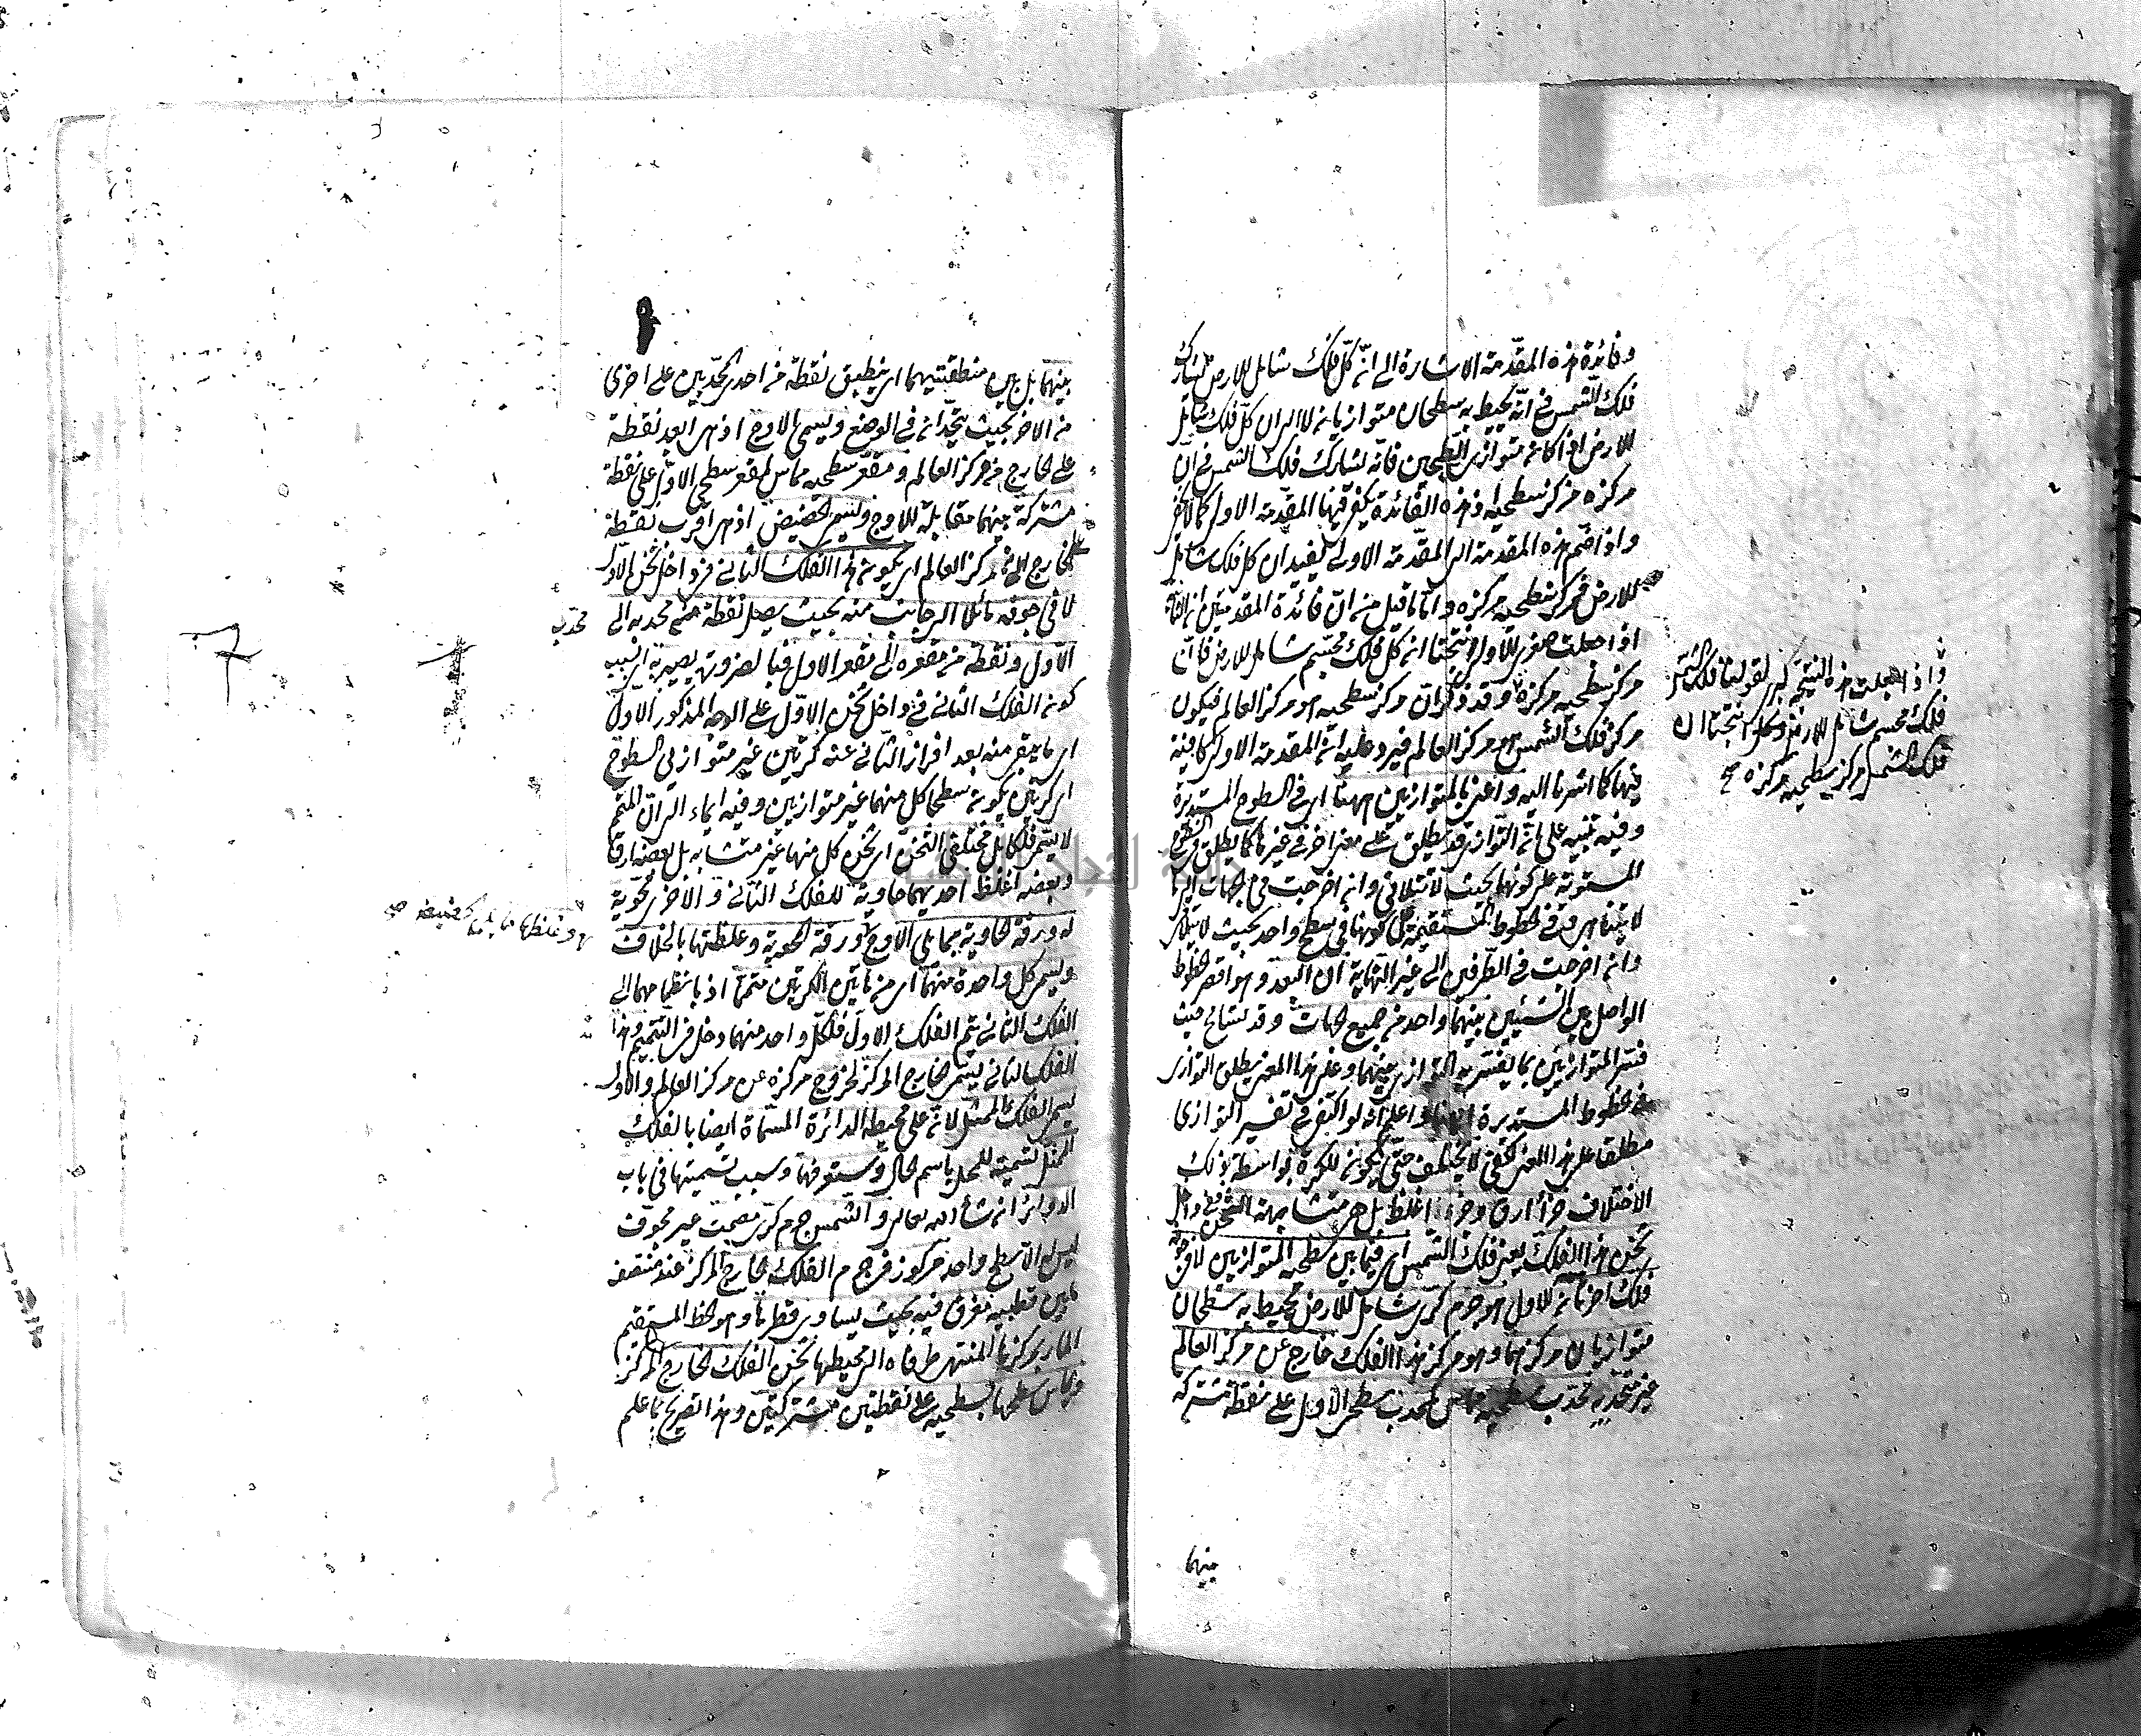 وفائدة هذه المقدمة الاشارة الى ان كل فلك شامل للارض يشارك
فلك الشمس في انه يحيط به سطحان متوازيان لا الى ان كل فلك شامل
للارض اذا كان متوازي السطحين فانه يشارك فلك الشمس في ان
مركزه مركز سطحيه اذ هذه الفائدة يكفي فيها المقدمة الاولى كما لا يخفى
واذا ضم هذه المقدمة الى المقدمة الاولى يفيد ان كل فلك شامل
للارض فمركز سطحيه مركزه واما ما قيل من ان فائدة المقدمتين ان الثانية
اذا جعلت صغرى للاولى انتجتا ان كل فلك مجسم شامل للارض فان
مركز سطحيه مركزه وقد ذكر ان مركز سطحيه هو مركز العالم فيكون
مركز فلك الشمس هو مركز العالم فيرد عليه ان المقدمة الاولى كافية
فيها كما اشرنا اليه واعني بالمتوازيين ههنا اي في السطوح المستديرة
وفيه تنبيه على ان التوازي قد يطلق على معنى اخر في غيرها كما يطلق في السطوح
المستوية على كونها بحيث لا تتلاقى وان اخرجت في الجهات الى ما
لا يتناهى وفي الخطوط المستقيمة على كونها في سطح واحد بحيث لا يتلاقى
وان اخرجت في الطرفين الى غير النهاية ان البعد وهو اقصر الخطوط
الواصل بين الشيئين بينهما واحد من جميع الجهات وقد تسامح حيث
فسر المتوازيين بما يفسر به التوازي بينهما وعلى هذا المعنى يطلق التوازي
في الخطوط المستديرة ايضا واعلم انه لو اكتفى في تفسير التوازي
مطلقا على هذا المعنى لكفى لا يختلف حتى يكون للكرة بواسطة ذلك
الاختلاف جزء ارق وجزء اغلظ بل هي متشابهة الثخن وفي داخل
ثخن هذا الفلك يعني فلك الشمس اي فيما بين سطحيه المتوازيين لا في جوفه
فلك اخر ثان للاول هو جرم كري شامل للارض محيط به سطحان
متوازيان مركزهما وهو مركز هذا الفلك خارج عن مركز العالم
محدب سطحيه مماس لمحدب سطحي الاول على نقطة مشتركة
بينهما
واذا جعلت هذه النتيجة كبرى لقولنا فلك الشمس
فلك مجسم شامل للارض انتجتا ان
فلك الشمس مركز سطحيه مركزه صح
بينهما بل بين منطقتيهما اي ينطبق نقطة من احد المحدبين على اخرى
من الاخر بحيث يتحدان في الوضع ويسمى الاوج اذ هي ابعد نقطة
على الخارج من مركز العالم ومقعر سطحيه مماس لمقعر سطحي الاول على نقطة
مشتركة بينهما مقابلة للاوج ويسمى الحضيض اذ هي اقرب نقطة
على الخارج الى مركز العالم اي يكون هذا الفلك الثاني في داخل ثخن الاول
لا في جوفه مائلا الى جانب منه بحيث يصل نقطة من محدبه الى
محدب
الاول ونقطة من مقعره الى مقعر الاول فبالضرورة يصير به اي بسبب
كون الفلك الثاني في داخل ثخن الاول على الوجه المذكور الاول
اي ما يبقى منه بعد افراز الثاني عنه كرتين غير متوازيتي السطوح
اي كرتين يكون سطحا كل منهما غير متوازيين وفيه ايماء الى ان المتمم
لا يسمى فلكا بل مختلفتي الثخن اي ثخن كل منهما غير متشابه بل بعضه ارق
وبعضه اغلظ احديهما حاوية للفلك الثاني والاخرى محوية
له ورقة الحاوية مما يلي الاوج ورقة المحوية وغلظتها بالخلاف
وغلظها مما يلي الحضيض صح
ويسمى كل واحدة منهما اي من هاتين الكرتين متمما اذ بانضمامهما الى
الفلك الثاني يتم الفلك الاول فلكل واحد منهما دخل في التتميم وهذا
الفلك الثاني يسمى خارج المركز لخروج مركزه عن مركز العالم والاول
يسمى الفلك الممثل لانه على محيطه الدائرة المسماة ايضا بالفلك
الممثل تسمية للمحل باسم الحال وستعرفها وسبب تسميتها في باب
الدوائر ان شاء الله تعالى والشمس جرم كري مصمت غير مجوف
ليس له الا سطح واحد مركوز في جرم الفلك الخارج المركز عند منتصف
ما بين قطبيه مغرق فيه بحيث يساوي قطرها وهو الخط المستقيم
المار بمركزها المنتهى طرفاه الى محيطها ثخن الفلك الخارج المركز
ويماس سطحها بسطحيه على نقطتين مشتركتين وهذا تصريح بما علم